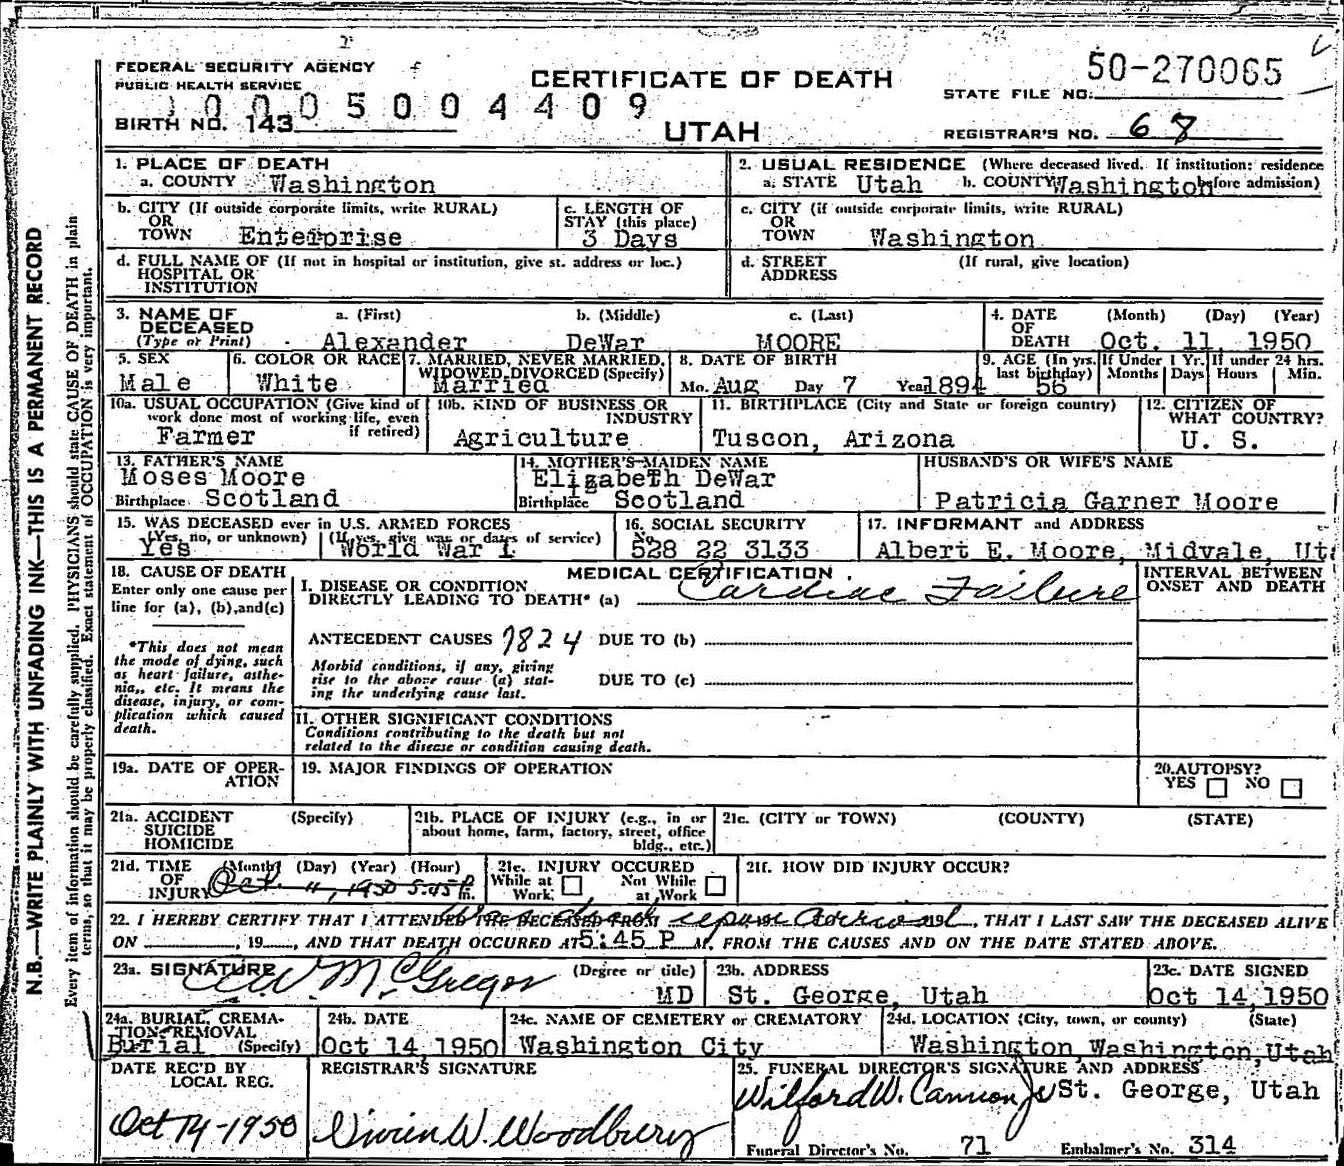 FEDERAL SECURITY AGENCY
PUBLIC HEALTH SERVICE
CERTIFICATE OF DEATH
UTAH
50-270065
STATE FILE NO.
10005004409
BIRTH NO. 143
REGISTRAR'S NO. 68
1. PLACE OF DEATH
a. COUNTY Washington
2. USUAL RESIDENCE (Where deceased lived. If institution: residence before admission)
a. STATE Utah b. COUNTY Washington
b. CITY (If outside corporate limits, write RURAL)
OR
TOWN Enterprise
c. LENGTH OF
STAY (this place)
3 Days
c. CITY (if outside corporate limits, write RURAL)
OR
TOWN Washington
d. FULL NAME OF (If not in hospital or institution, give st. address or loc.)
HOSPITAL OR
INSTITUTION
d. STREET (If rural, give location)
ADDRESS
3. NAME OF
DECEASED
(Type or Print)
a. (First) b. (Middle) c. (Last)
Alexander DeWar MOORE
4. DATE (Month) (Day) (Year)
OF
DEATH Oct. 11, 1950
5. SEX
Male
6. COLOR OR RACE
White
7. MARRIED, NEVER MARRIED,
WIDOWED, DIVORCED (Specify)
Married
8. DATE OF BIRTH
Mo. Aug Day 7 Year 1894
9. AGE (In yrs. last birthday)
56
If Under 1 Yr.
Months Days
If under 24 hrs.
Hours Min.
10a. USUAL OCCUPATION (Give kind of
work done most of working life, even
if retired)
Farmer
10b. KIND OF BUSINESS OR
INDUSTRY
Agriculture
11. BIRTHPLACE (City and State or foreign country)
Tuscon, Arizona
12. CITIZEN OF
WHAT COUNTRY?
U. S.
13. FATHER'S NAME
Moses Moore
Birthplace Scotland
14. MOTHER'S MAIDEN NAME
Elizabeth DeWar
Birthplace Scotland
HUSBAND'S OR WIFE'S NAME
Patricia Garner Moore
15. WAS DECEASED ever in U.S. ARMED FORCES
(Yes, no, or unknown) (If yes, give war or dates of service)
Yes World War I
16. SOCIAL SECURITY
No.
528 22 3133
17. INFORMANT and ADDRESS
Albert E. Moore, Midvale, Uta
18. CAUSE OF DEATH
Enter only one cause per
line for (a), (b), and (c)
*This does not mean
the mode of dying, such
as heart failure, asthe-
nia,, etc. It means the
disease, injury, or com-
plication which caused
death.
MEDICAL CERTIFICATION
I. DISEASE OR CONDITION
DIRECTLY LEADING TO DEATH* (a) Cardiac Failure
ANTECEDENT CAUSES 7824 DUE TO (b)
Morbid conditions, if any, giving
rise to the above cause (a) stat-
ing the underlying cause last.
DUE TO (c)
II. OTHER SIGNIFICANT CONDITIONS
Conditions contributing to the death but not
related to the disease or condition causing death.
INTERVAL BETWEEN
ONSET AND DEATH
19a. DATE OF OPER-
ATION
19. MAJOR FINDINGS OF OPERATION
20. AUTOPSY?
YES NO
21a. ACCIDENT (Specify)
SUICIDE
HOMICIDE
21b. PLACE OF INJURY (e.g., in or
about home, farm, factory, street, office
bldg., etc.)
21c. (CITY or TOWN) (COUNTY) (STATE)
21d. TIME (Month) (Day) (Year) (Hour)
OF
INJURY Oct. 11, 1950 5:45 P m.
21e. INJURY OCCURED
While at Work Not While at Work
21f. HOW DID INJURY OCCUR?
22. I HEREBY CERTIFY THAT I ATTENDED THE DECEASED FROM 19, THAT I LAST SAW THE DECEASED ALIVE
ON, 19, AND THAT DEATH OCCURED AT 5:45 P M, FROM THE CAUSES AND ON THE DATE STATED ABOVE.
23a. SIGNATURE (Degree or title)
W. McGregor MD
23b. ADDRESS
St. George, Utah
23c. DATE SIGNED
Oct 14, 1950
24a. BURIAL, CREMA-
TION, REMOVAL
Burial (Specify)
24b. DATE
Oct 14, 1950
24c. NAME OF CEMETERY or CREMATORY
Washington City
24d. LOCATION (City, town, or county) (State)
Washington, Washington, Utah
DATE REC'D BY
LOCAL REG.
Oct 14-1950
REGISTRAR'S SIGNATURE
Vivien W. Woodbury
25. FUNERAL DIRECTOR'S SIGNATURE AND ADDRESS
Wilford W. Cannon Jr St. George, Utah
Funeral Director's No. 71 Embalmer's No. 314
N.B.—WRITE PLAINLY WITH UNFADING INK—THIS IS A PERMANENT RECORD
Every item of information should be carefully supplied. PHYSICIANS should state CAUSE OF DEATH in plain
terms, so that it may be properly classified. Exact statement of OCCUPATION is very important.